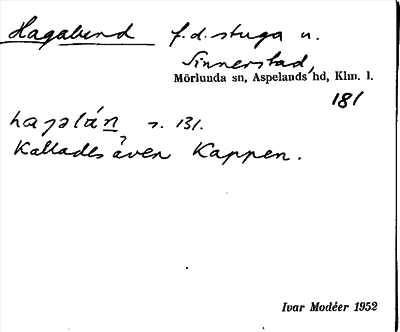 Hagalund f.d. stuga u.
Sinnerstad,
Mörlunda sn, Aspelands hd, Klm. l.
181
s. 131.
Kallades även Kappen.
Ivar Modéer 1952